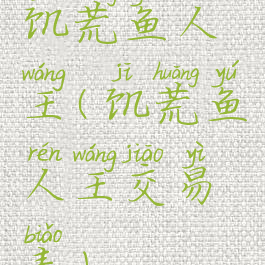 饥荒鱼人
wáng jī huāng yú
王(饥荒鱼
rén wáng jiāo yì
人王交易
biǎo
表)